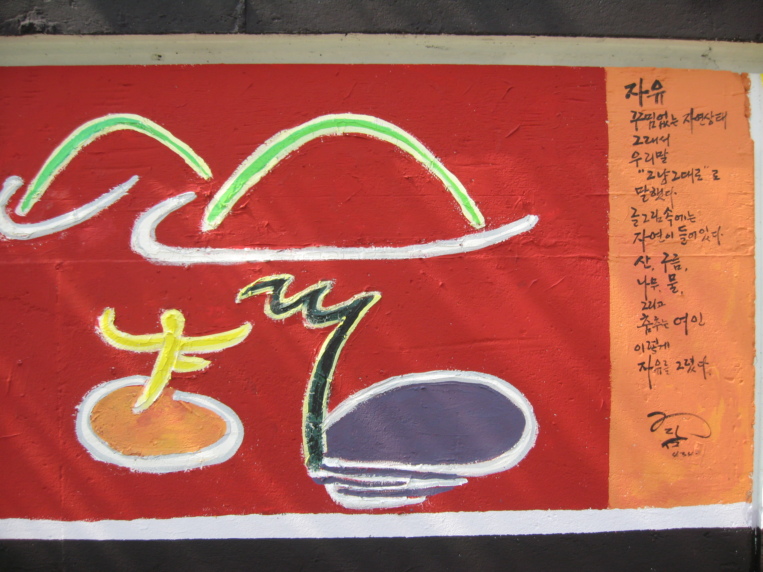 자유
꾸밈없는 자연상태
그래서
우리말
"그냥 그대로"로
말했다.
글그림속에는
자연이 들어있다
산, 구름,
나무, 물,
그리고
춤추는 여인
이렇게
자유를 그렸다.